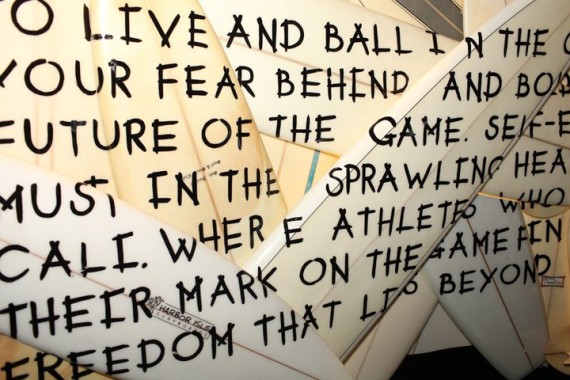 TO LIVE AND BALL IN THE
YOUR FEAR BEHIND AND BOL
FUTURE OF THE GAME. SELF-E
MUST IN THE SPRAWLING HEA
CALI. WHERE ATHLETES WHO
THEIR MARK ON THE GAME FIN
FREEDOM THAT LIES BEYOND
HARBOR ISLE